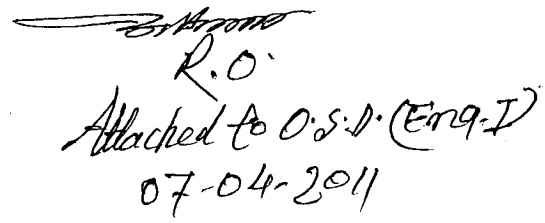 R.O.
Attached to O.S.D. (Enq-I)
07-04-2011